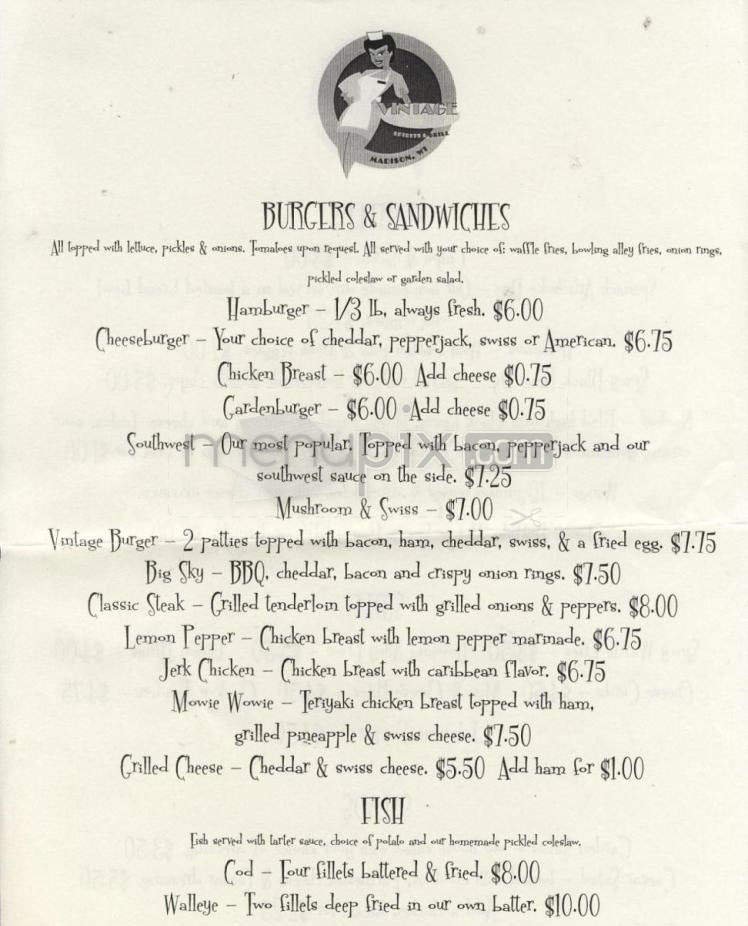 VINTAGE
SPIRITS & GRILL
MADISON, WI
BURGERS & SANDWICHES
All topped with lettuce, pickles & onions. Tomatoes upon request. All served with your choice of: waffle fries, bowling alley fries, onion rings,
pickled coleslaw or garden salad.
Hamburger – 1/3 lb, always fresh. $6.00
Cheeseburger – Your choice of cheddar, pepperjack, swiss or American. $6.75
Chicken Breast – $6.00 Add cheese $0.75
Gardenburger – $6.00 Add cheese $0.75
Southwest – Our most popular. Topped with bacon, pepperjack and our
menupix.com
southwest sauce on the side. $7.25
Mushroom & Swiss – $7.00
Vintage Burger – 2 patties topped with bacon, ham, cheddar, swiss, & a fried egg. $7.75
Big Sky – BBQ, cheddar, bacon and crispy onion rings. $7.50
Classic Steak – Grilled tenderloin topped with grilled onions & peppers. $8.00
Lemon Pepper – Chicken breast with lemon pepper marinade. $6.75
Jerk Chicken – Chicken breast with caribbean flavor. $6.75
Mowie Wowie – Teriyaki chicken breast topped with ham,
grilled pineapple & swiss cheese. $7.50
Grilled Cheese – Cheddar & swiss cheese. $5.50 Add ham for $1.00
FISH
Fish served with tarter sauce, choice of potato and our homemade pickled coleslaw.
Cod – Four fillets battered & fried. $8.00
Walleye – Two fillets deep fried in our own batter. $10.00